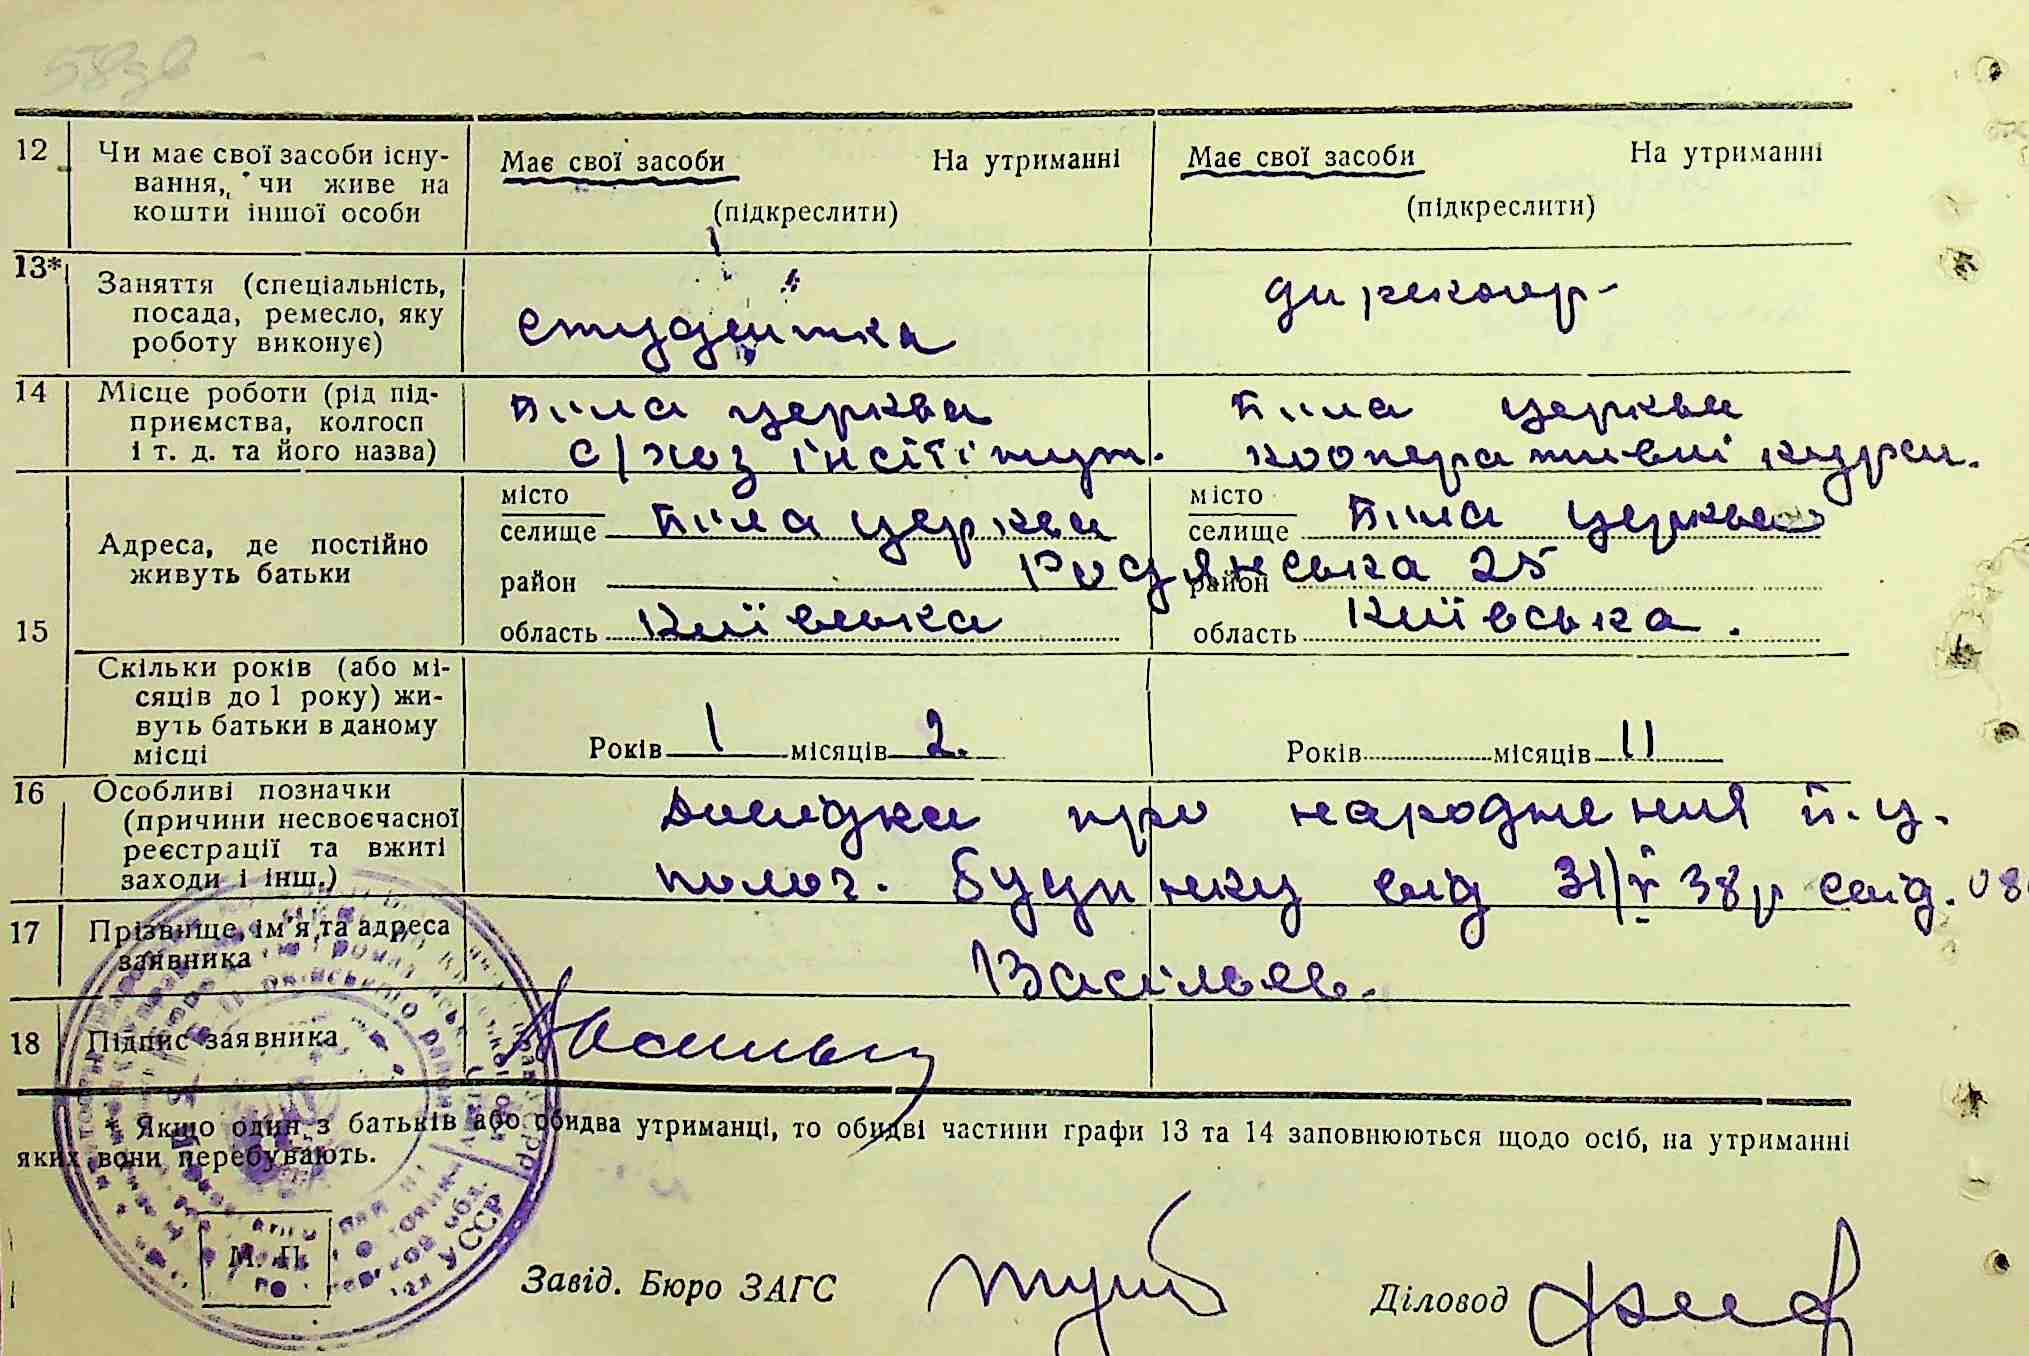 12 Чи має свої засоби існу- Має свої засоби На утриманні Має свої засоби На утриманні
вання, чи живе на
кошти іншої особи (підкреслити) (підкреслити)
13* Заняття (спеціальність, директор
посада, ремесло, яку студентка
роботу виконує)
14 Місце роботи (рід під- Біла церква Біла церква
приємства, колгосп
і т. д. та його назва) с/хоз інститут. кооперативні курси.
місто місто
селище Біла церква селище Біла церква
Адреса, де постійно
живуть батьки район район 25
15 область Київська область Київська.
Скільки років (або мі-
сяців до 1 року) жи-
вуть батьки в даному
місці Років 1 місяців 2. Років місяців 11
16 Особливі позначки Довідка про народження Б.Ц.
(причини несвоєчасної
реєстрації та вжиті
заходи і інш.) полог. будинку від 31/V 38р
17 Прізвище, ім'я та адреса
заявника Васільєв.
18 Підпис заявника
* Якщо один з батьків або обидва утриманці, то обидві частини графи 13 та 14 заповнюються щодо осіб, на утриманні
яких вони перебувають.
М. П.
Завід. Бюро ЗАГС Діловод
УССР